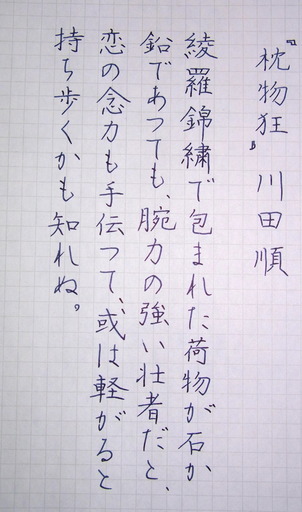 『枕物狂』 川田順
綾羅錦繍で包まれた荷物が石か
鉛であつても、腕力の強い壮者だと、
恋の念力も手伝つて、或は軽がると
持ち歩くかも知れぬ。